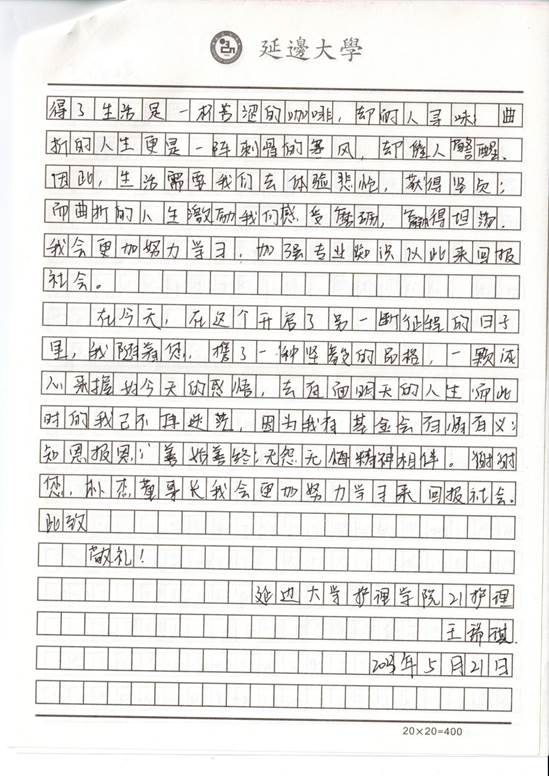 延邊大學
得了生活是一杯苦涩的咖啡，却耐人寻味；曲
折的人生更是一阵刺骨的寒风，却催人警醒。
因此，生活需要我们去体验悲怆，获得坚贞；
而曲折的人生激励我们感受磨砺，赢得坦荡。
我会更加努力学习，加强专业知识以此来回报
社会。
在今天，在这个开启了另一断征程的日子
里，我随着您，携了一种坚毅的品格，一颗诚
心来握好今天的感悟，去面向明天的人生而此
时的我已不再迷茫，因为我有基金会有情有义；
知恩报恩；善始善终；无怨无悔精神相伴。谢谢
您，朴 董事长我会更加努力学习来回报社会。
此致
敬礼！
延边大学护理学院21护理
王 琪
2023年5月21日
20×20=400